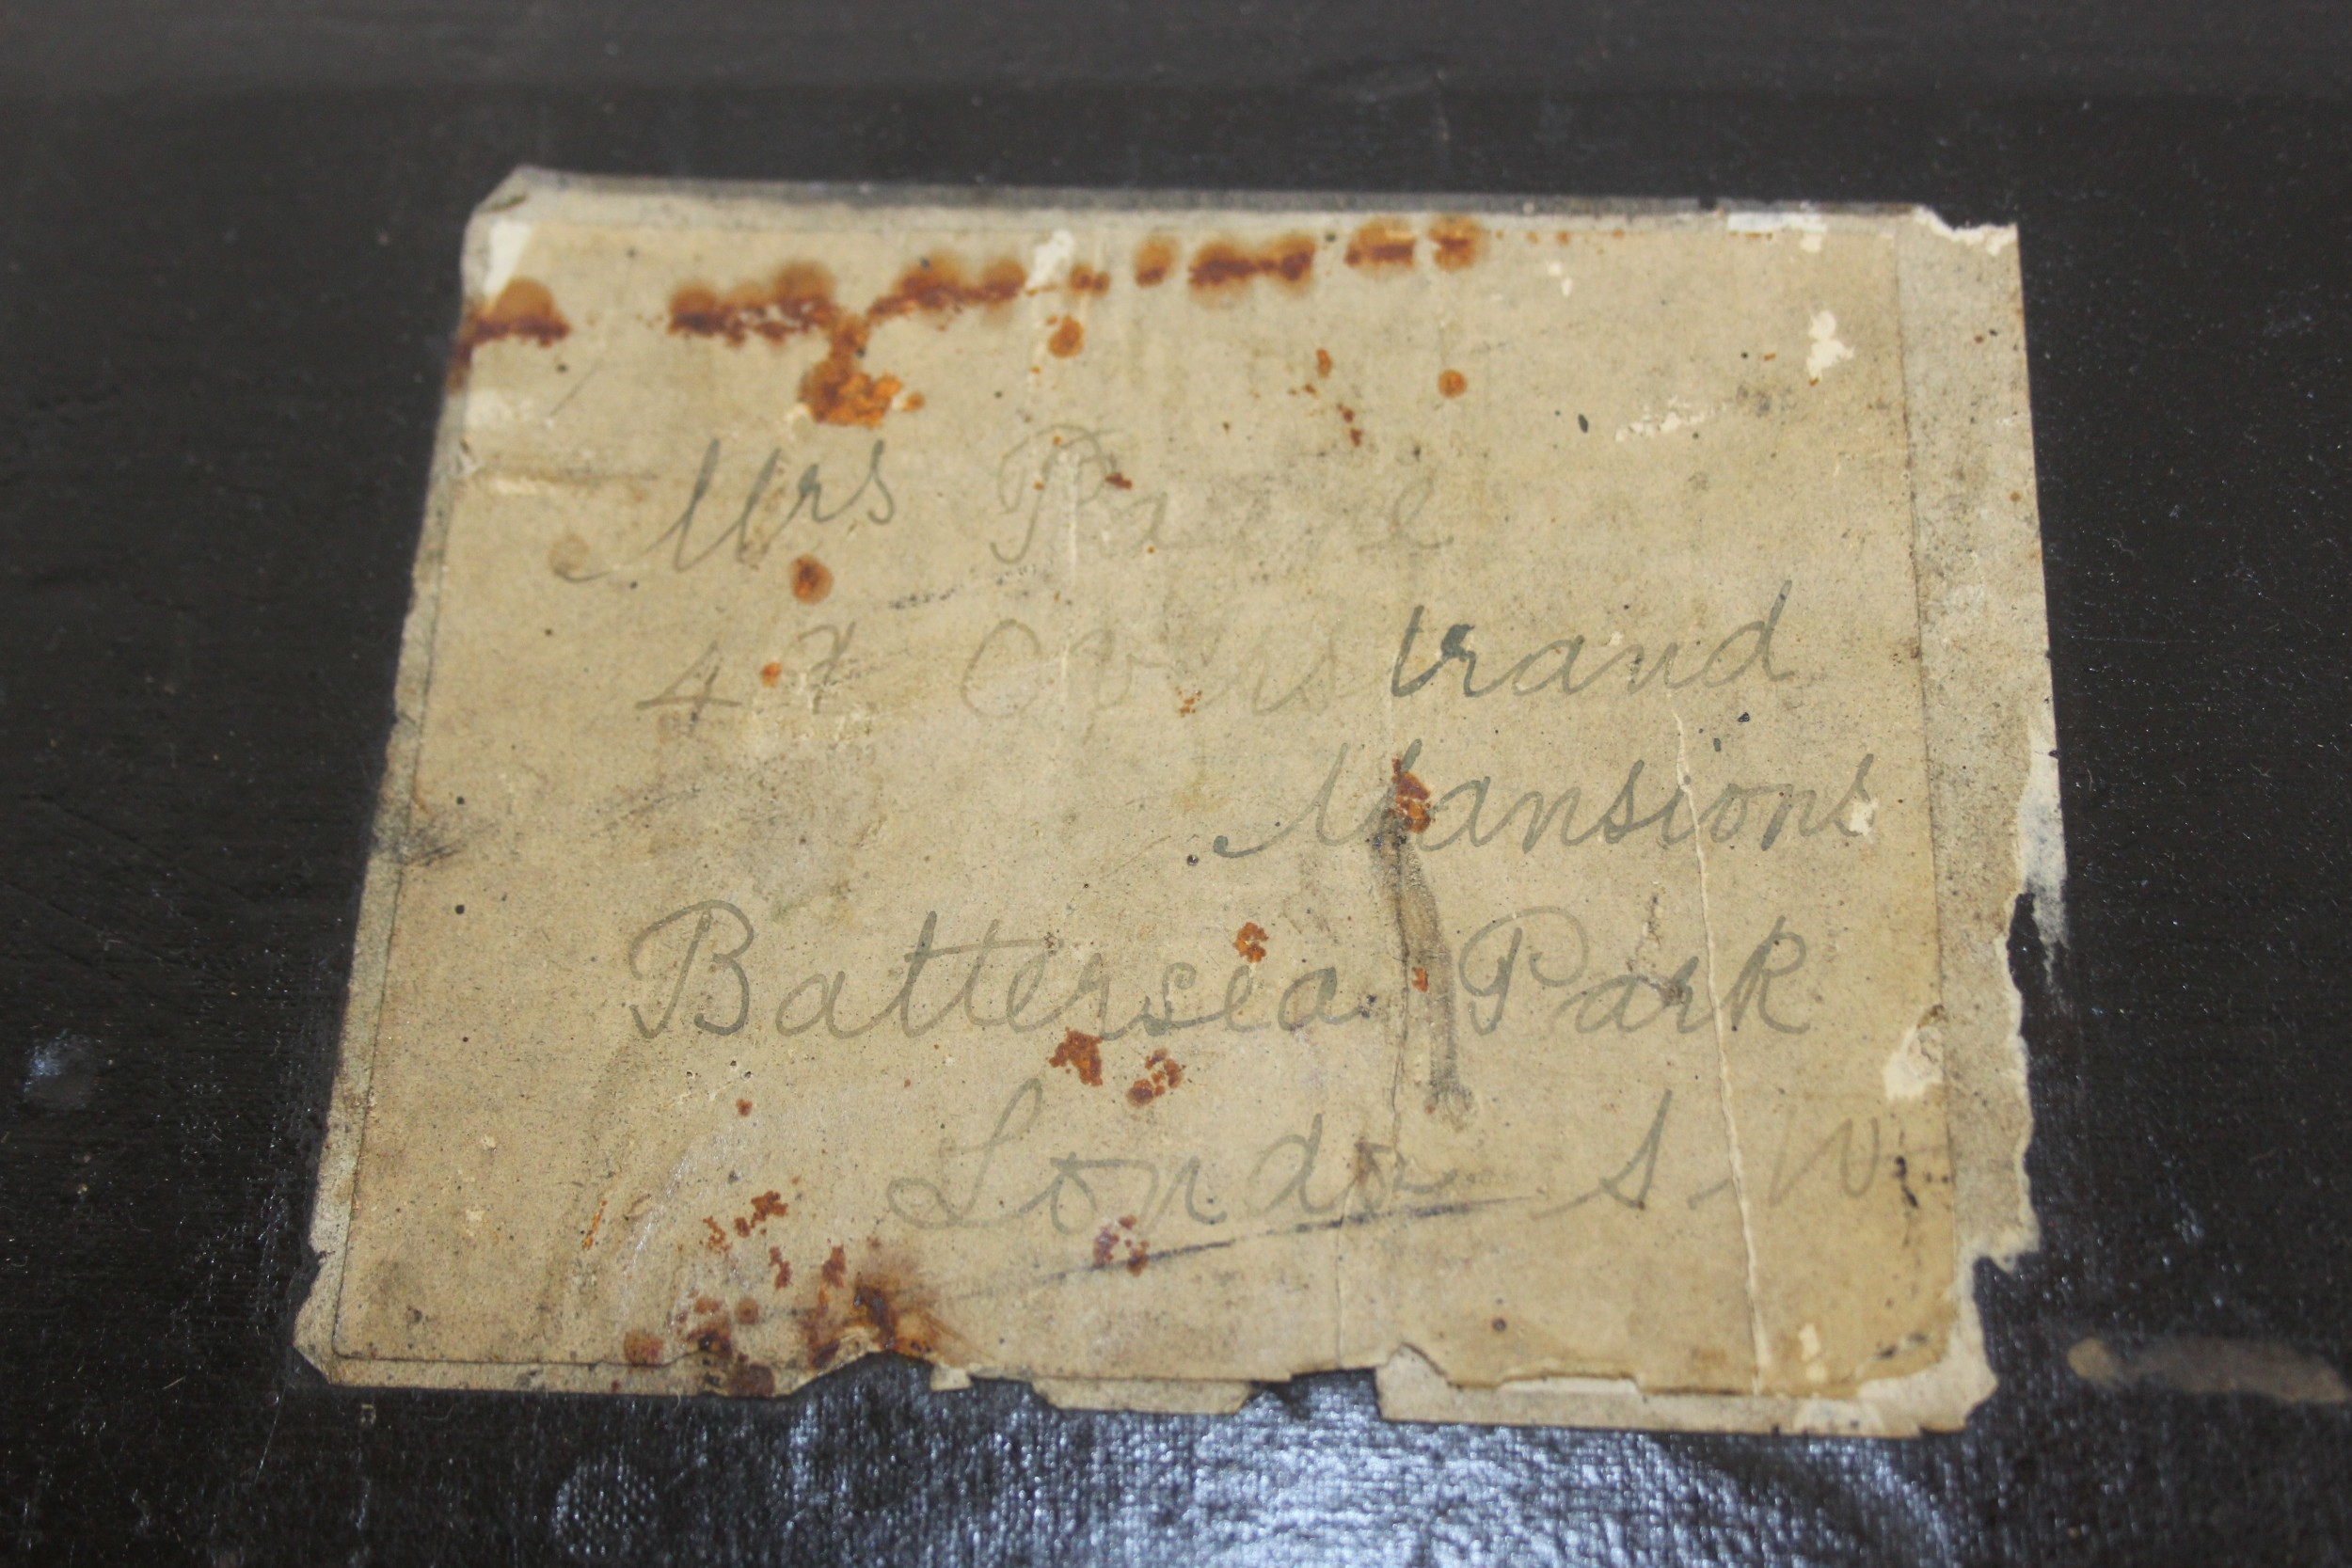 Mrs
Overstrand
Mansions
Battersea Park
London S.W.